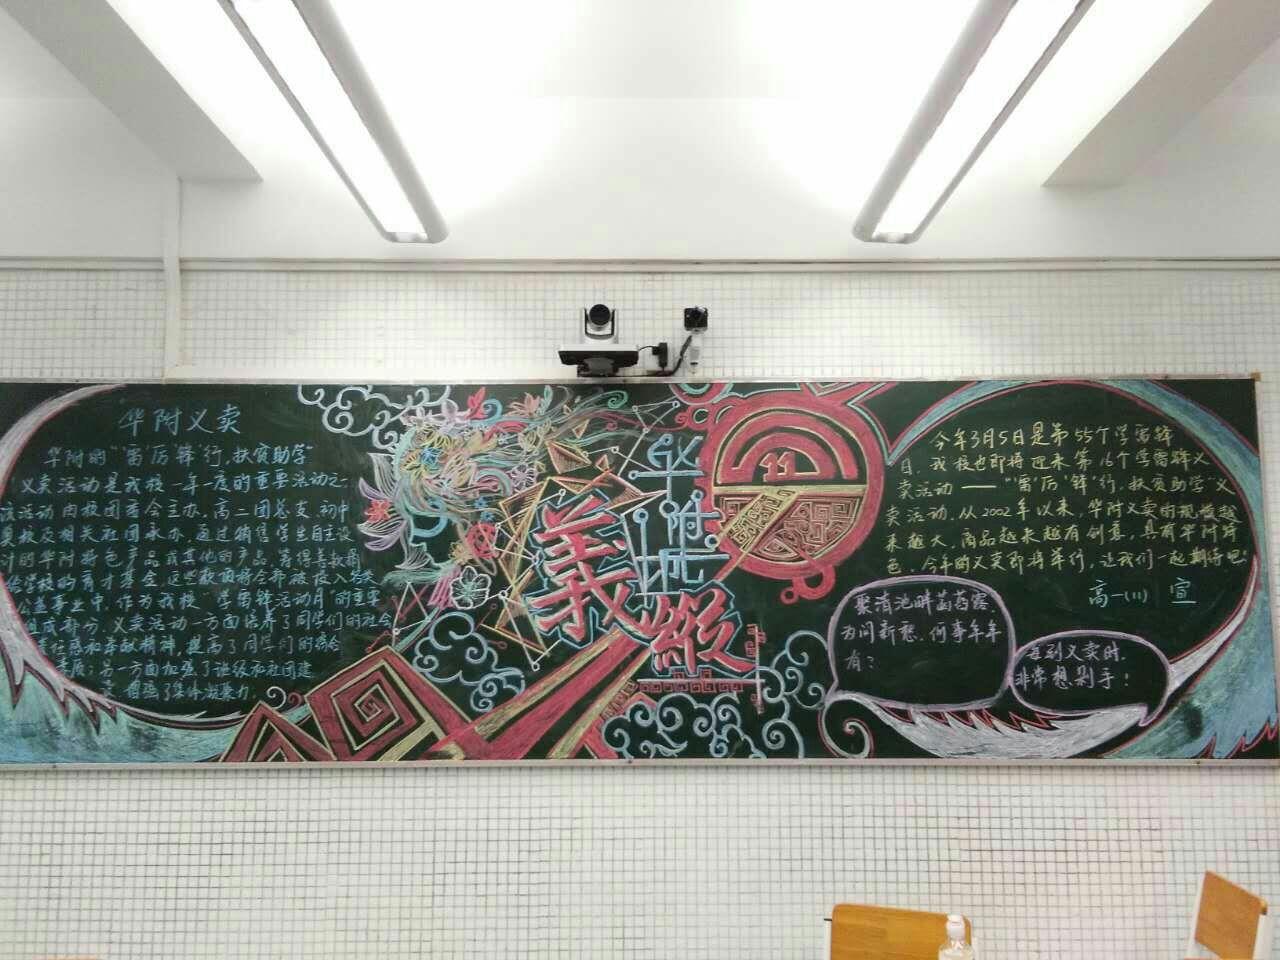 华附义卖
华附的“雷厉锋行,扶贫助学”
义卖活动是我校一年一度的重要活动之一
该活动由校团委会主办,高二团总支,初中
及相关社团承办,通过销售学生自主设
计的华附特色产品或其他的产品,筹得善款捐
给学校的育才基金,这些款项将全部被投入各类
公益事业中。作为我校“学雷锋活动月”的重要
组成部分,义卖活动一方面培养了同学们的社会
责任感和奉献精神,提高了同学们的综合
素质;另一方面加强了班级和社团建
增强了集体凝聚力.
华附
義
縱
11
今年3月5日是第55个学雷锋
日,我校也即将迎来第16个学雷锋义
卖活动——“雷厉‘锋’行,扶贫助学”义
卖活动.从2002年以来,华附义卖的规模越
来越大,商品越来越有创意,具有华附特
色.今年的义卖即将举行,让我们一起期待吧!
高一(11) 宣
聚清池畔菡萏露
为问新愁,何事年年
有?
每到义卖时,
非常想剁手!